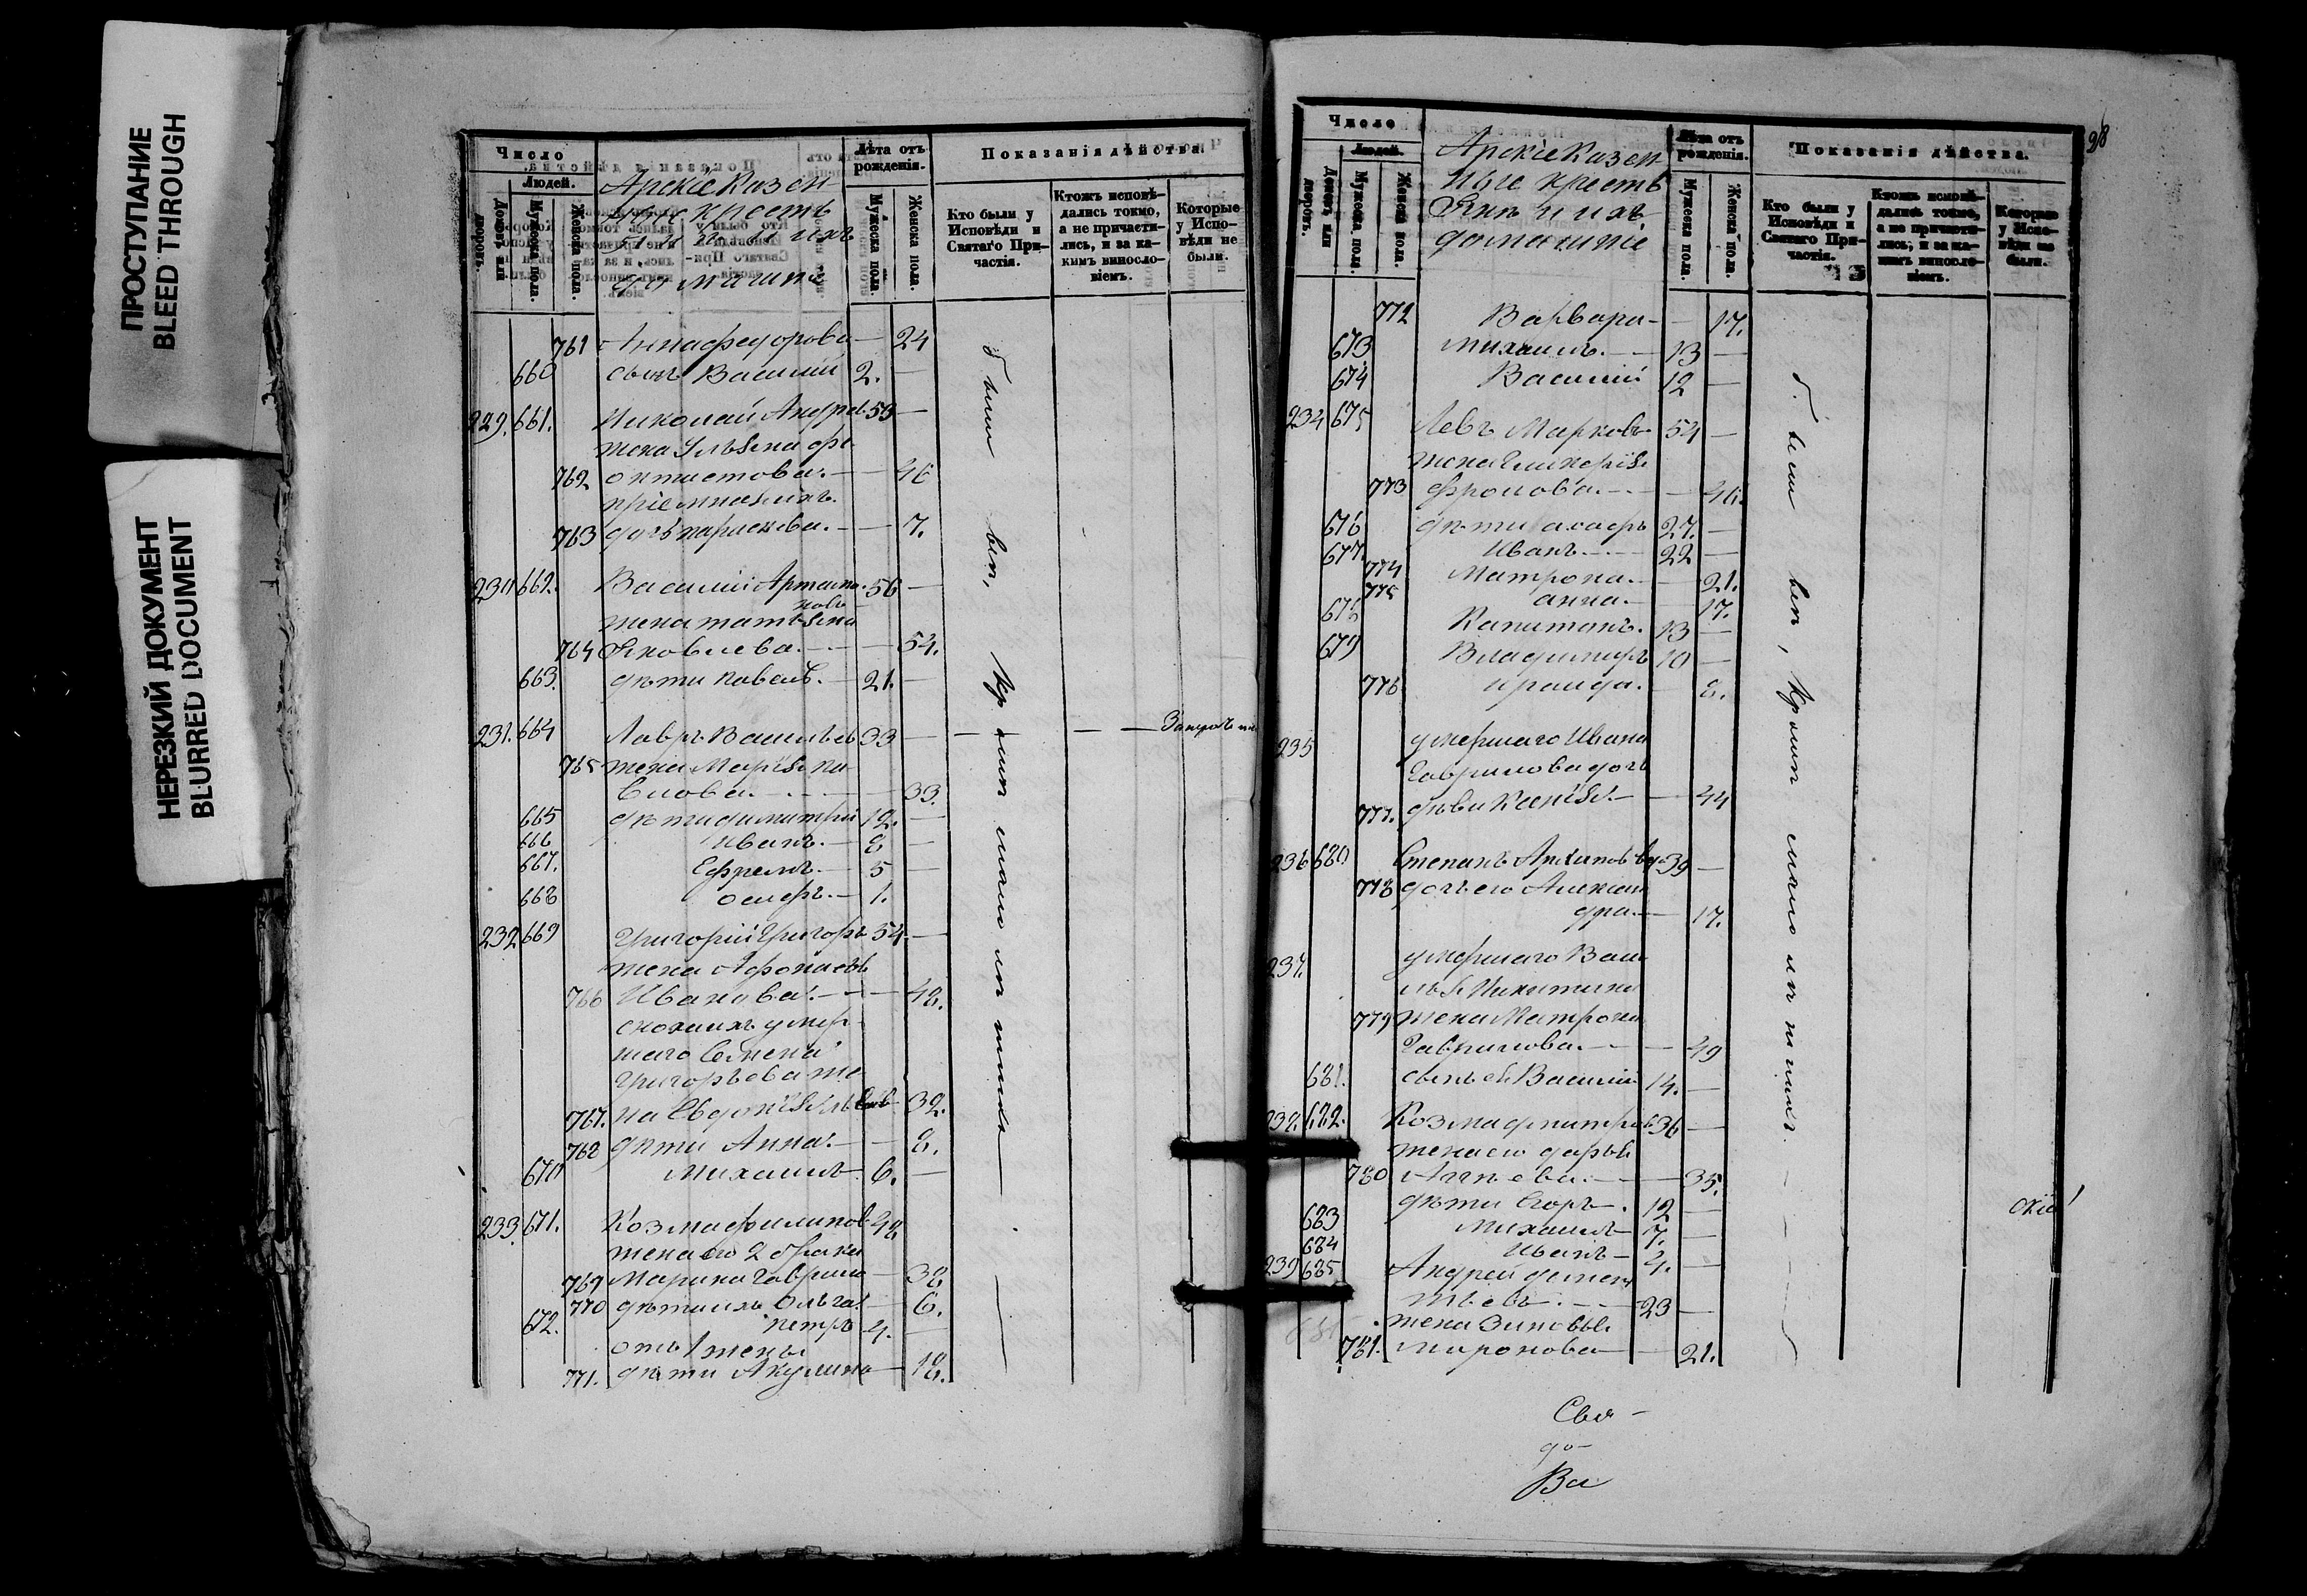 ПРОСТУПАНИЕ
BLEED THROUGH
НЕРЕЗКИЙ ДОКУМЕНТ
BLURRED DOCUMENT
Число
Людей.
Домъ или дворовъ.
Мужеска пола.
Женска пола.
Арскіе казен-
ные кресть
яне и ихъ
домашніе
Лѣта отъ рожденія.
Мужеска пола.
Женска пола.
Показанія дѣйства.
Кто были у Исповѣди и Святаго Причастія.
Ктожъ исповѣдались токмо, а не причастились, и за какимъ винословіемъ.
Которые у Исповѣди не были.
761 Анна федорова — 24
660 сынъ Василий 2. —
229. 661. Николай Андрев 59 —
жена Ульяна фе
762 октистова. — — 46
пріемная ихъ
763 дочь параскева. — — 7.
230 662. Василий Артамо- 56 —
новъ
жена татьяна
764 Яковлева. — — 54.
663. дѣти Павелъ. — 21. —
231. 664 Лавръ Васильев 33 — — — —
765 жена Марія па
влова. — — 33.
665 дѣти димитрій 12. —
666 Иванъ. — 8 —
667. Ефремъ. — 5 —
668 осифъ. — 1.
232 669 Григорій Григорь 54. —
жена Афонасья
766 Иванова. — — 48.
сноха ихъ умер-
шаго Семена
Григорьева же-
767. на Евдокія — 32.
768 дѣти Анна. — — 8.
670 Михаилъ 6. —
233. 671. Козма филипов 48
жена его 2 брака
769 Марина гаврило — 38
770 дѣти ихъ Ольга. — 6.
672. петръ 4. —
отъ 1 жены
771. дѣти Акулина — 18.
были всѣ, кр
98
Число
Людей.
Домъ или дворовъ.
Мужеска пола.
Женска пола.
Арскіе казен
ные кресть
яне и ихъ
домашніе
Лѣта отъ рожденія.
Мужеска пола.
Женска пола.
Показанія дѣйства.
Кто были у Исповѣди и Святаго Причастія.
Ктожъ исповѣдались токмо, а не причастились, и за какимъ винословіемъ.
Которые у Исповѣди не были.
772 Варвара — — 17.
673 михаилъ. — — 13 —
674 Василий 12 —
234 675 Левъ Марковъ 54 —
жена Гликерія
773 фролова. — — 46.
676 дѣти 27. —
677. Иванъ — 22 —
774 Матрона. — — 21.
775 анна. — 17.
678 Капитонъ. 13 —
679 Владимиръ 10 —
776 ираида. — 8.
235 умершаго Ивана
Гаврилова дочь
777. дѣвица — — 44
236 680. Степанъ Архипов 39 —
778 дочь его Алексан
дра. — 17.
237. умершаго Васи
лья Никитина
779 жена Матрона
Гаврилова. — — 49
681. сынъ ея Василий 14. —
238. 682. Козма димитрев 36 —
жена его дарья
780 — — 35.
дѣти Егоръ — . 12 —
683 Михаилъ — 7. —
684 Иванъ — 4. —
239 685 Андрей демен
тьевъ. — — 23 —
жена Зиновья
781. миронова — — 21.
были всѣ, кромѣ
скіе
Свя-
до-
Ва